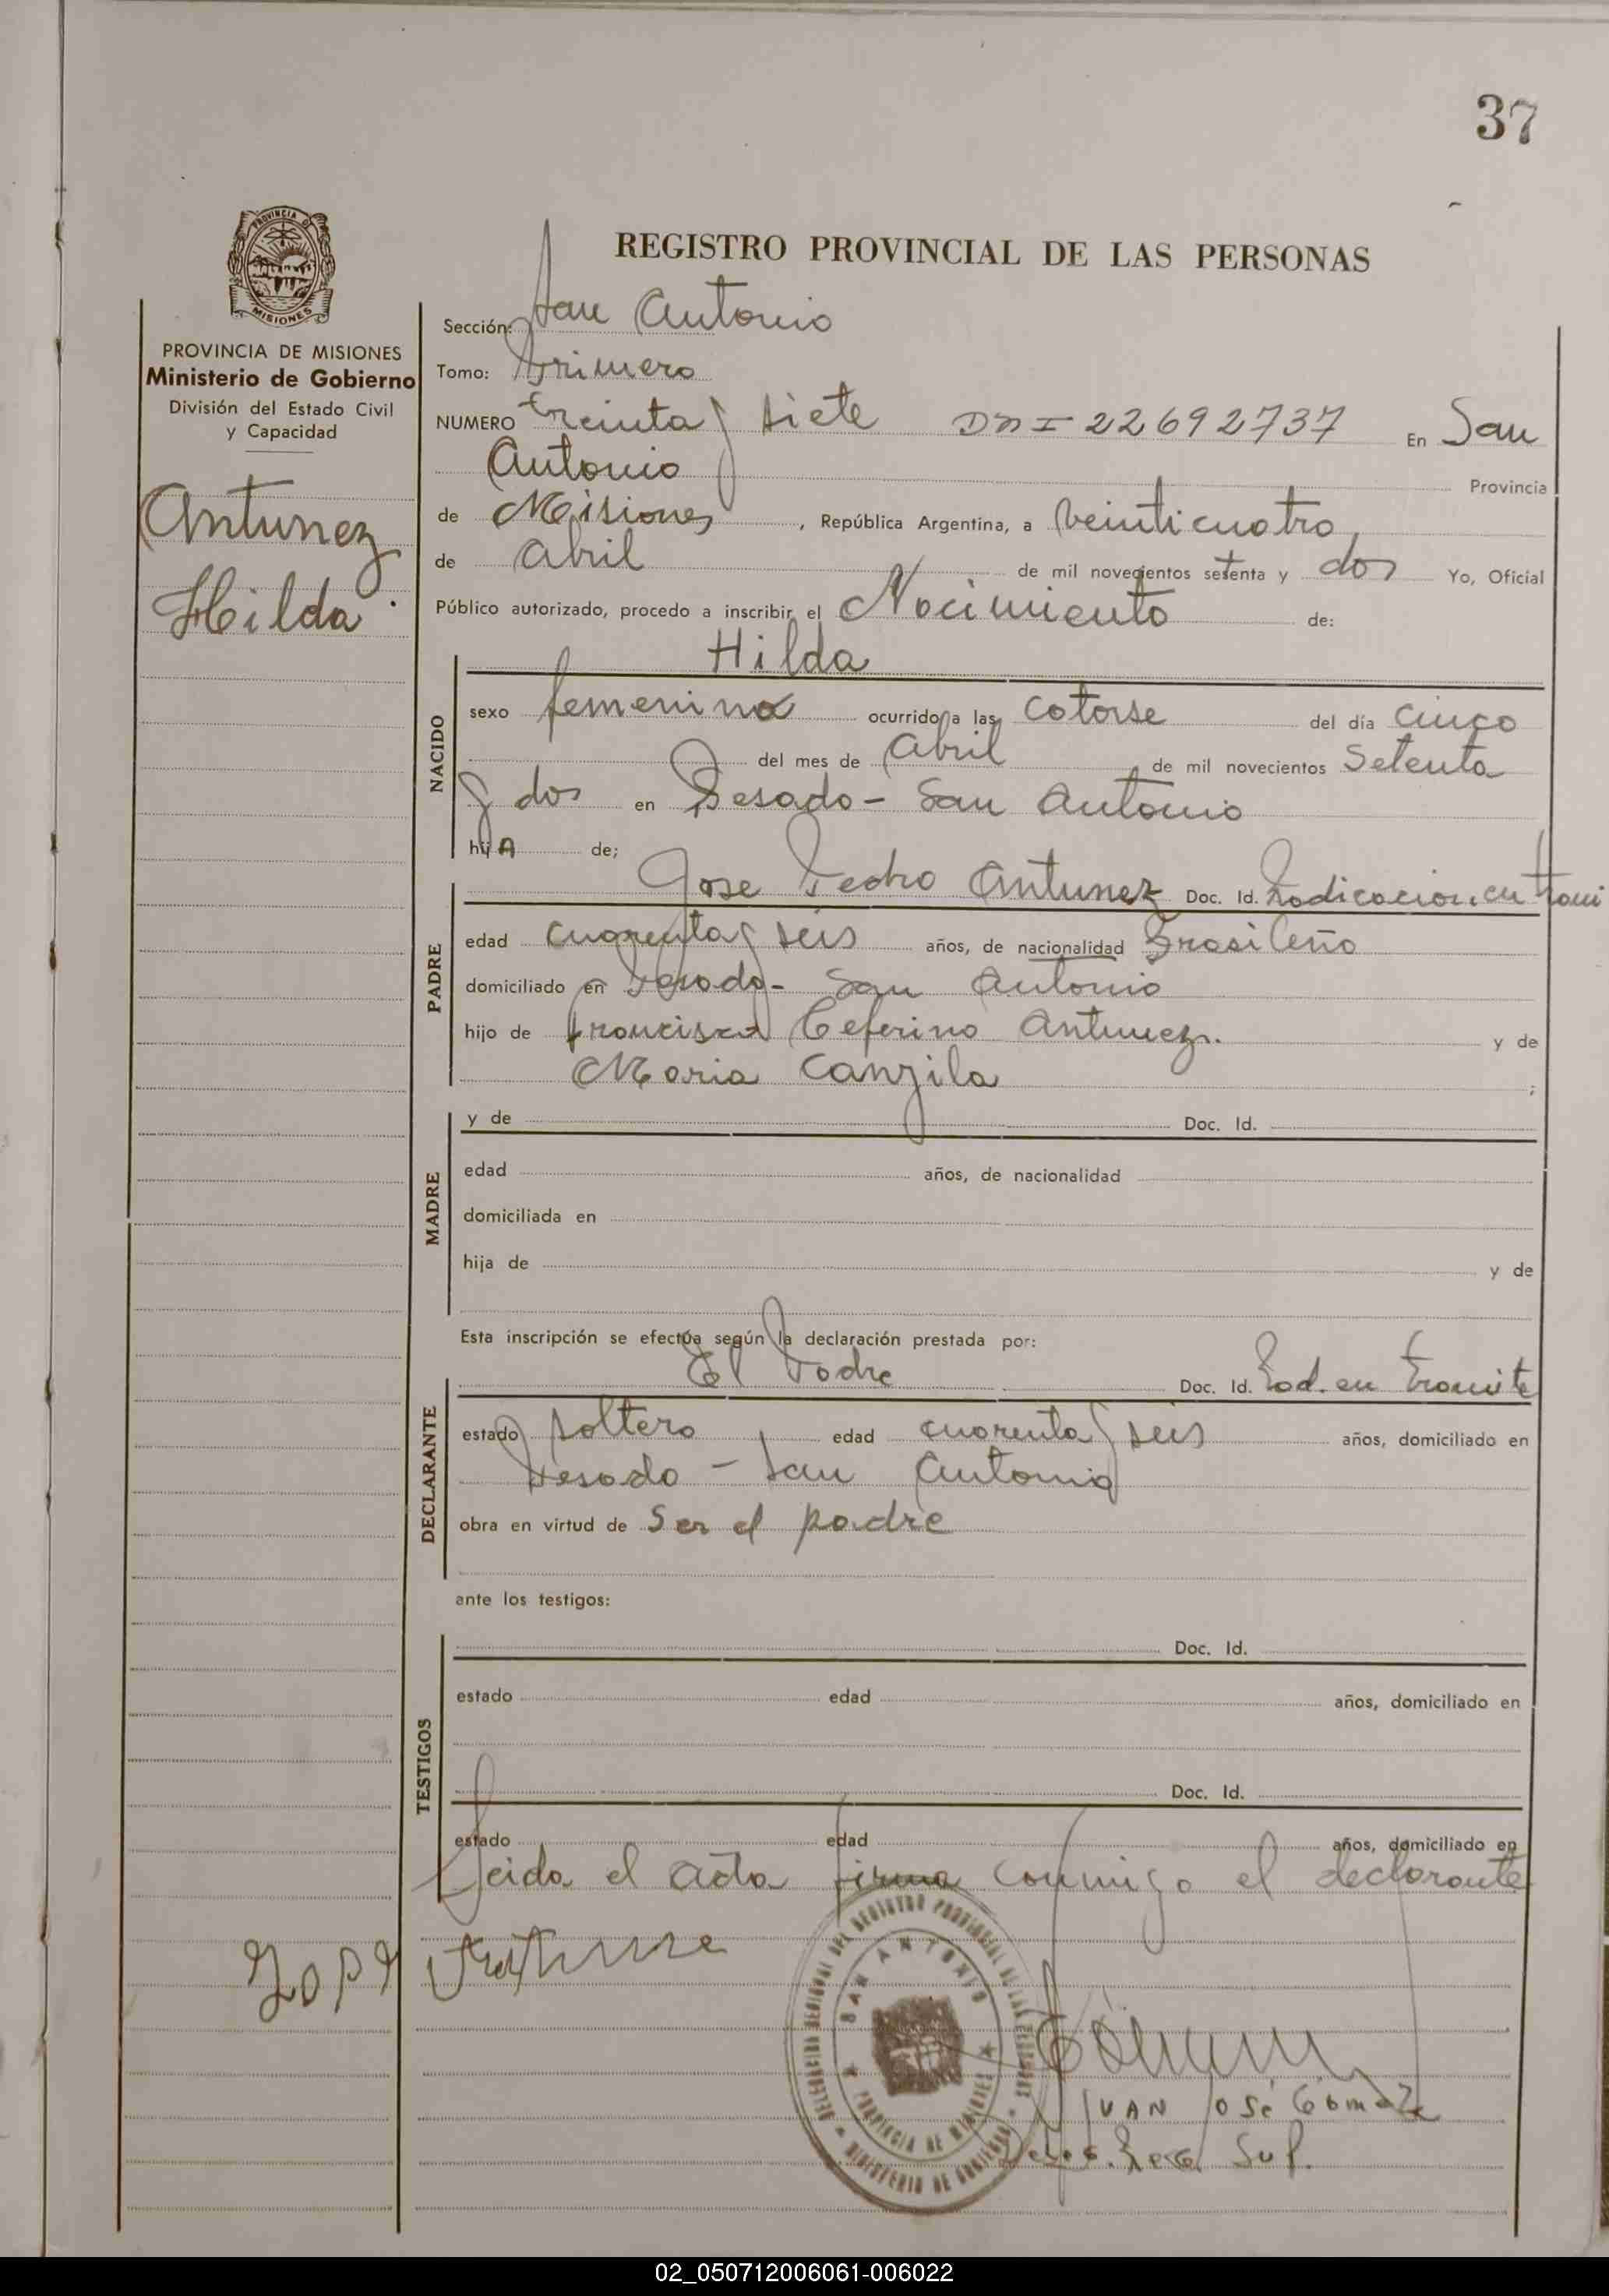 37
REGISTRO PROVINCIAL DE LAS PERSONAS
PROVINCIA DE MISIONES
Ministerio de Gobierno
División del Estado Civil
y Capacidad
Antunez
Hilda
Sección: San Antonio
Tomo: Primero
NUMERO treinta y siete DNI-22692737 En San
Antonio Provincia
de Misiones, República Argentina, a veinticuatro
de abril de mil novecientos setenta y dos Yo, Oficial
Público autorizado, procedo a inscribir el Nacimiento de:
Hilda
NACIDO
sexo femenino ocurrido a las catorse del día cinco
del mes de abril de mil novecientos setenta
y dos en Pesado - San Antonio
hijA de;
PADRE
Jose Pedro Antunez Doc. Id. Radicacion en trami
edad cuarenta y seis años, de nacionalidad Brasileño
domiciliado en Pesado - San Antonio
hijo de Francisco Ceferino Antunez. y de
Maria Canzila ;
MADRE
y de Doc. Id.
edad años, de nacionalidad
domiciliada en
hija de y de
Esta inscripción se efectúa según la declaración prestada por:
DECLARANTE
El Padre Doc. Id. Rad. en tramite
estado soltero edad cuarenta y seis años, domiciliado en
Pesado - San Antonio
obra en virtud de Ser el padre
ante los testigos:
TESTIGOS
Doc. Id.
estado edad años, domiciliado en
Doc. Id.
estado edad años, domiciliado en
Leida el acta firma conmigo el declarante
SAN ANTONIO
PROVINCIA DE MISIONES
MINISTERIO DE GOBIERNO
IVAN JOSé Gómez
Sup.
02_050712006061-006022